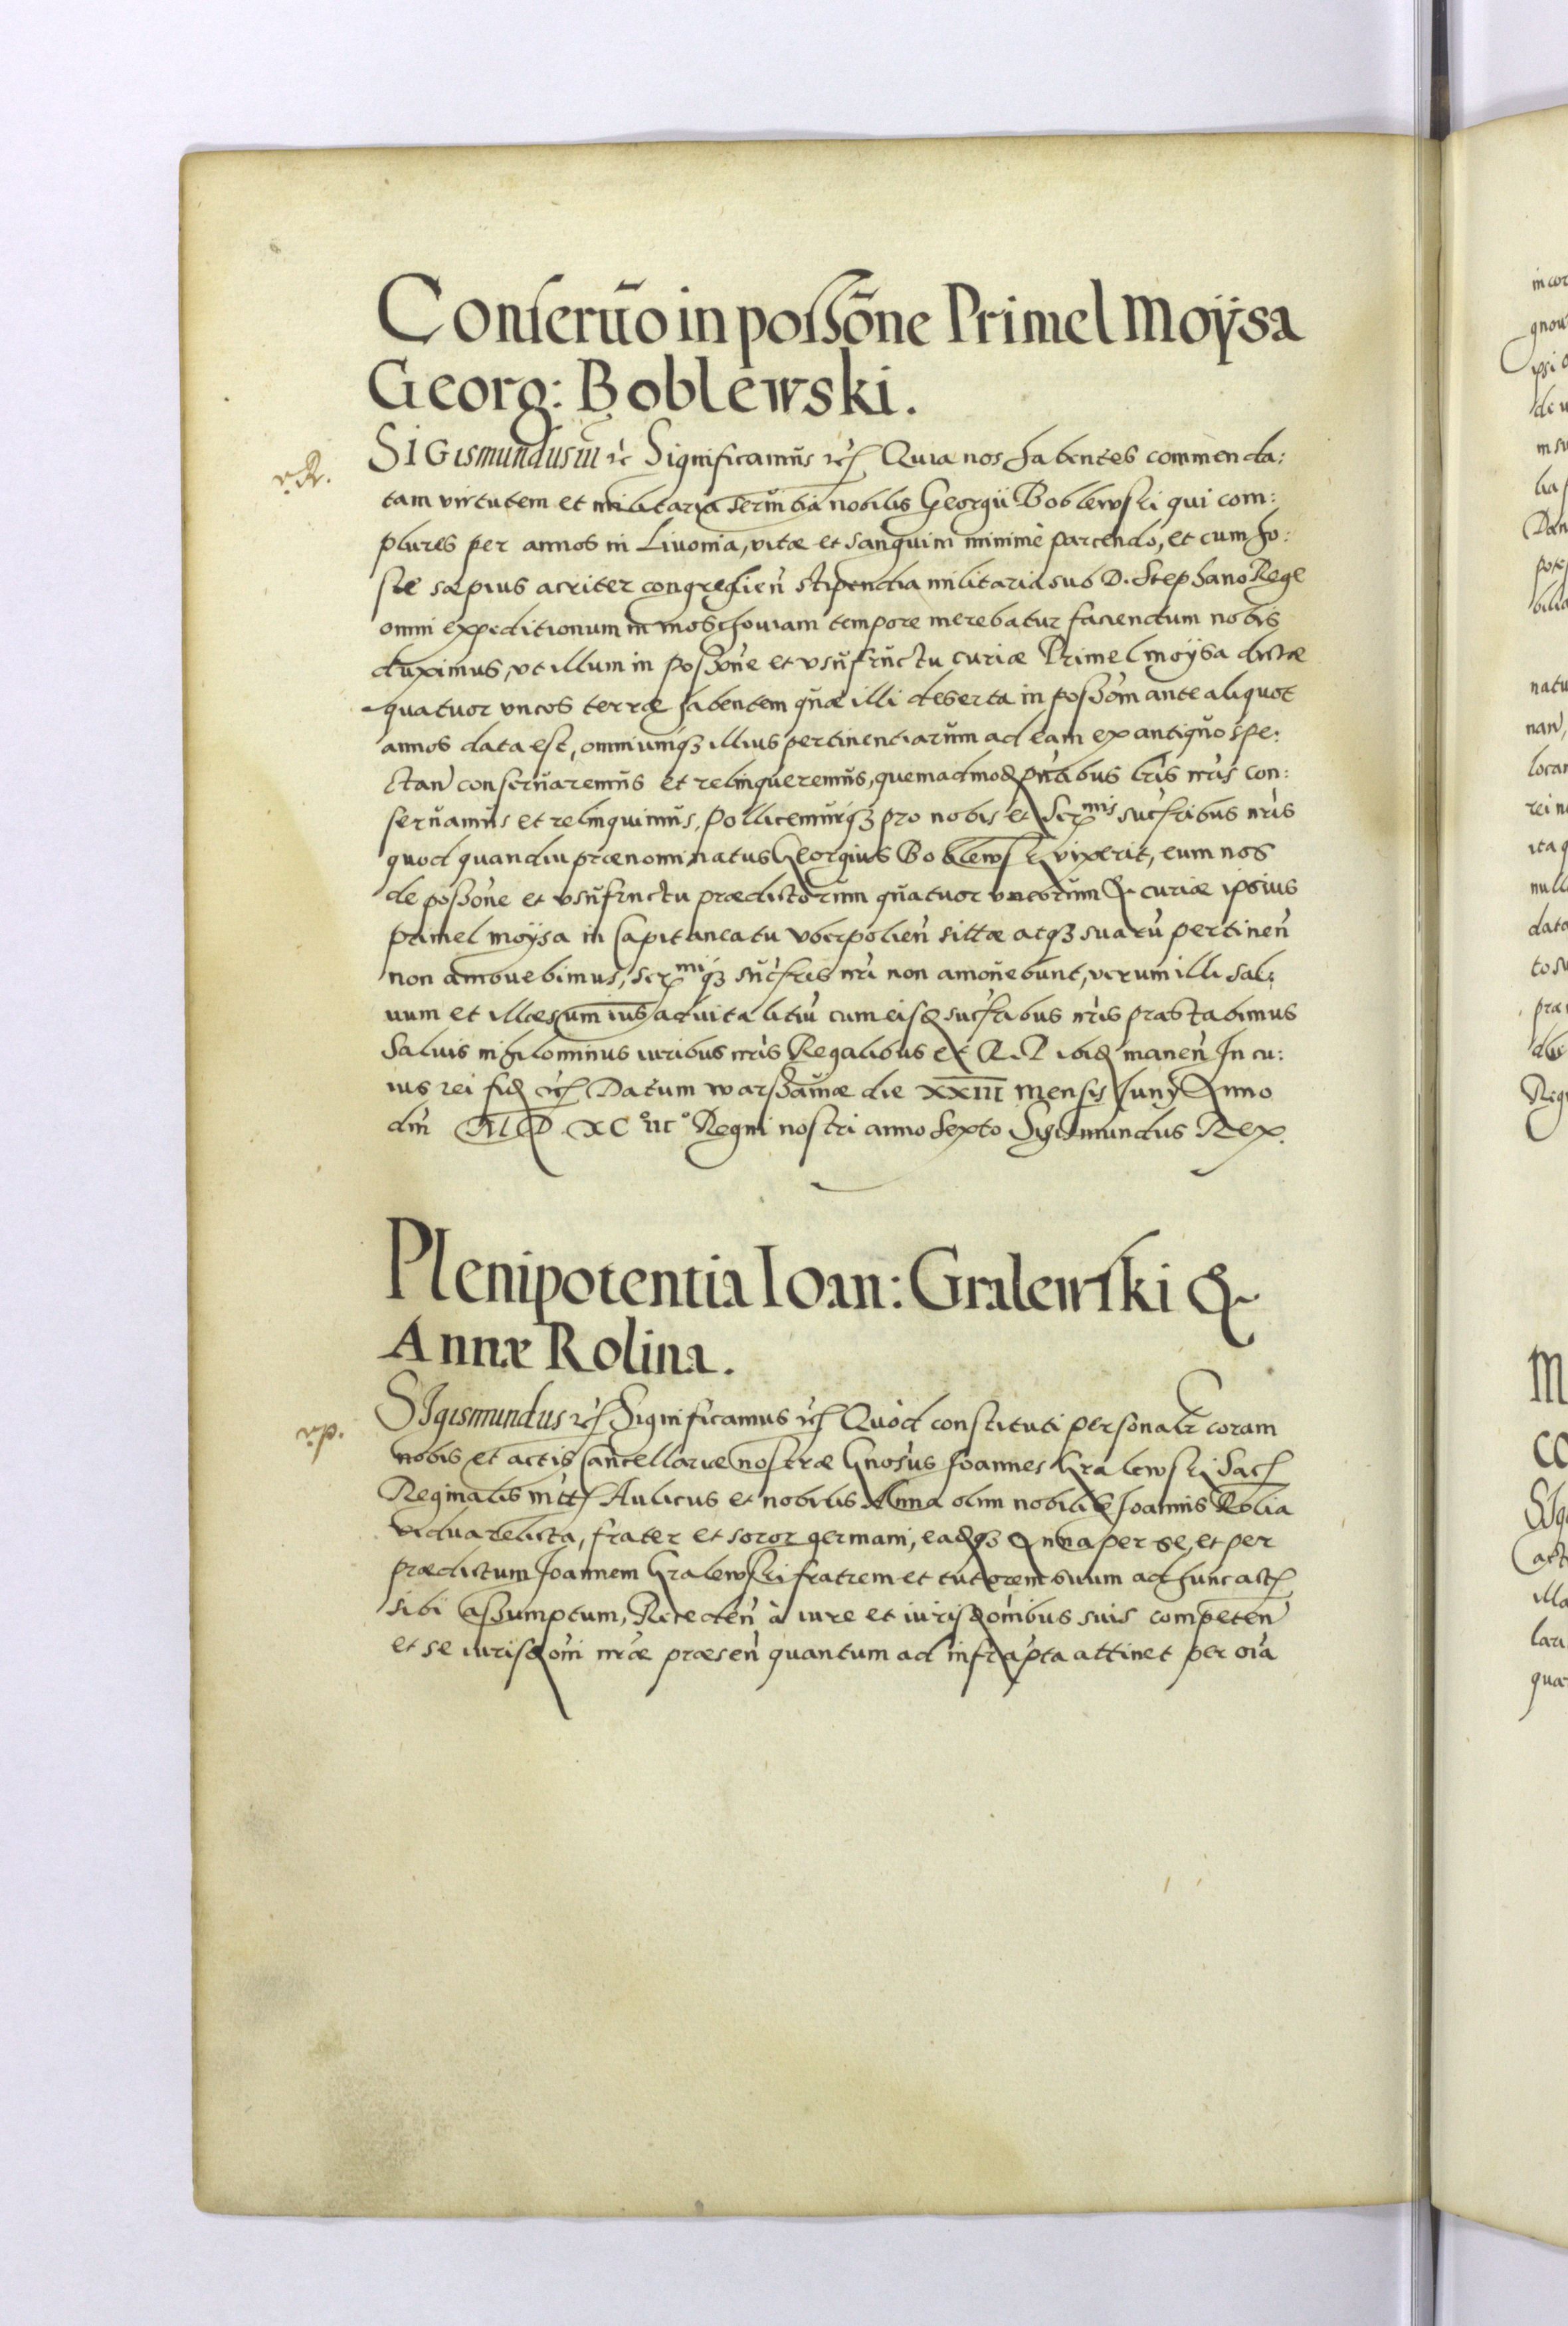 Conseruõ in possõne Primel Moÿsa
Georg: Boblewski.
v. R.
SIGismundus iii etc Significamus etc Quia nos habentes commenda:
tam virtutem et militaria seruitia nobilis Georgii Boblewski qui com:
plures per annos in Liuonia, vitæ et sanguini minimè parcendo, et cum ho:
ste sæpius acriter congredien̄ stipendia militaria sub D. Stephano Rege
omni expeditionum in moschouiam tempore merebatur faciendum nobis
duximus, vt illum in posson̄e et vsufructu curiæ Primel moÿsa dictæ
quatuor vncos terræ habentem quæ illi deserta in possōm ante aliquot
annos data est, omniumqʒ illius pertinentiarum ad eam ex antiquo spe:
ctan̄ conseruaremus et relinqueremus, quemadmod pn̄tibus lr̄is nr̄is con:
seruamus et relinquimus, Pollicemurqʒ pro nobis et Serᵐⁱˢ succ̄ribus nr̄is
quod quandiu prænominatus Georgius Boblewski vixerit, eum nos
de posson̄e et vsufructu prædictorum quatuor vncorum & curiæ ipsius
primel moÿsa in Capitaneatu vberpolien̄ sittæ atqʒ suarū pertinen̄
non amouebimus, Serᵐⁱqʒ succ̄res nr̄i non amouebunt, verum illi sal:
uum et illæsum ius aduitalitiū cum eisd succ̄ribus nr̄is præstabimus
Saluis nihilominus iuribus nr̄is Regalibus et R. P. ibid manen̄ In cu:
ius rei fid etc Datum warssauiæ die XXIII mensis Iunij Anno
dn̄i M D XC° iii° Regni nostri anno Sexto Sigismundus Rex.
Plenipotentia Ioan: Gralewski &
Annæ Rolina.
v. p.
SIgismundus etc Significamus etc Quòd constituti personalr̄ coram
nobis et actis Cancellariæ nostræ Gnosus Joannes Gralewski Sac
Reginalis mtt Aulicus et nobilis Anna olim nobilis Joannis Rolia
vidua relicta, frater et soror germani, eadqʒ Anna per se, et per
prædictum Joannem Gralewski fratrem et tutorem suum ad hunc act
sibi assumptum, Receden̄ à iure et iurisdom̄ibus suis competen̄
et se iurisdom̄i nr̄æ præsen̄ quantum ad infrapta attinet per oīa